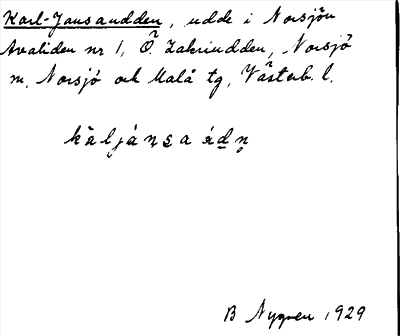 Karl-Jansaudden, udde i Norsjön
Avaliden nr 1, Ö. Zakriudden, Norsjö
m, Norsjö och Malå tg, Västerb. l.
kāljánsaádn̥
B Nygren 1929